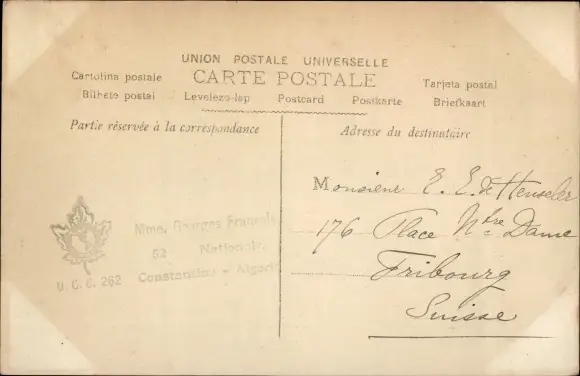 UNION POSTALE UNIVERSELLE
CARTE POSTALE
Cartolina postale
Tarjeta postal
Bilhete postal Levelezo-lap Postcard Postkarte Briefkaart
Partie réservée à la correspondance
Adresse du destinataire
Monsieur E. E. de Henseler
176 Place Ntre Dame
Fribourg
Suisse
Mme. Georges Français
52 Nationale.
Constantine - Algérie
U. C. C. 262